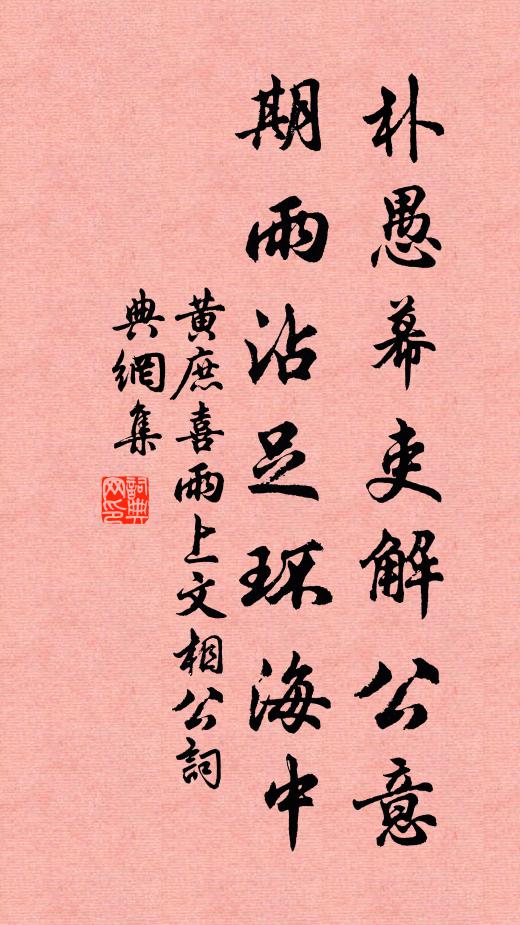 朴愚幕吏解公意
期雨沾足环海中
黄庶喜雨上文相公詞
典網集
詞典网印